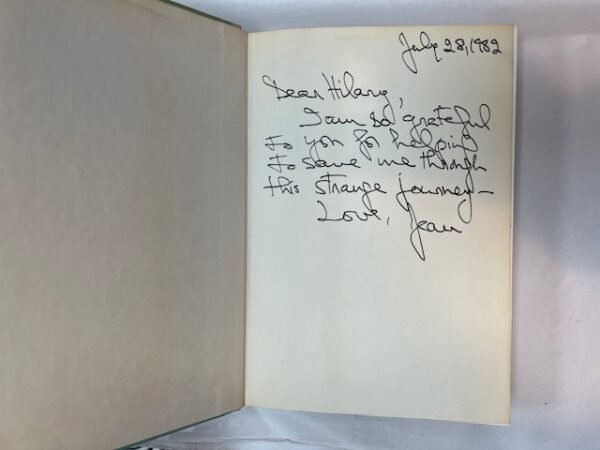 July 28, 1982
Dear Hilary,
I am so grateful
to you for helping
to save me through
this strange journey—
Love, Jean